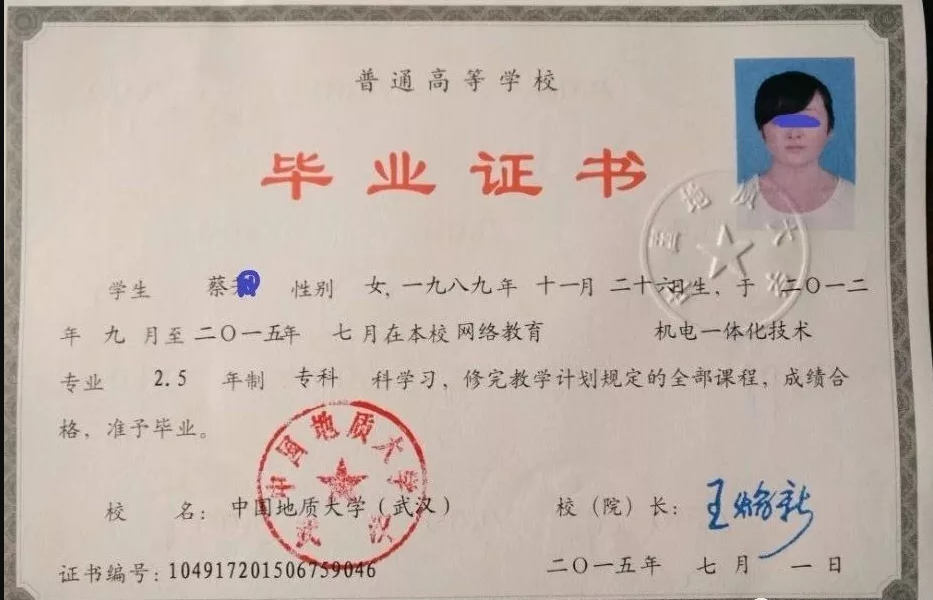 普通高等学校
毕业证书
学生 蔡 性别 女，一九八九年 十一月 二十六日生，于 二〇一二
年 九 月至 二〇一五年 七 月在本校 网络教育 机电一体化技术
专业 2.5 年制 专科 科学习，修完教学计划规定的全部课程，成绩合
格，准予毕业。
校 名：中国地质大学（武汉）
校（院）长：王焰新
证书编号：104917201506759046
二〇一五年 七 月 一 日
中国地质大学
武汉